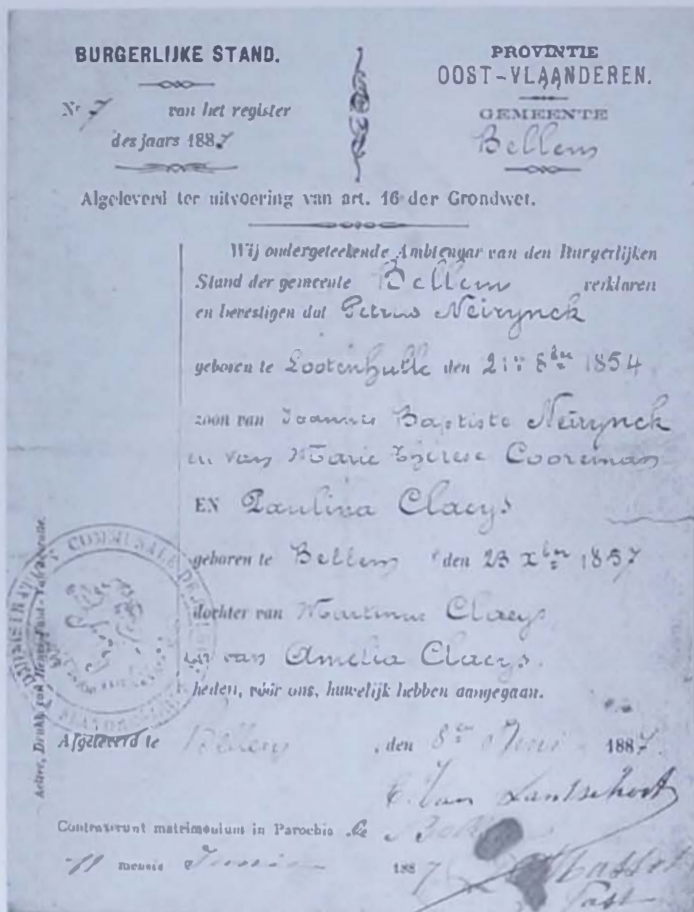 BURGERLIJKE STAND.
Nr 7 van het register
des jaars 1887
PROVINTIE
OOST-VLAANDEREN.
GEMEENTE
Bellem
Algeleverd ter uitvoering van art. 16 der Grondwet.
Wij ondergeteekende Ambtenaar van den Burgerlijken
Stand der gemeente Bellem verklaren
en bevestigen dat Petrus Neirynck
geboren te Lootenhulle den 21en 8ber 1854
zoon van Joannis Baptiste Neirynck
en van Marie Therese Cooreman
EN Paulina Claeys
geboren te Bellem den 23 Xber 1857
dochter van Martinus Claeys
en van Amelia Claeys.
heden, vóór ons, huwelijk hebben aangegaan.
Afgeleverd te Bellem, den 8en Juni 1887
C. Van Lantschoot
Contraxerunt matrimonium in Parochia de
11 mensis Junii 1887
Past
Aeltre, Drukk. van
COMMUNALE DE